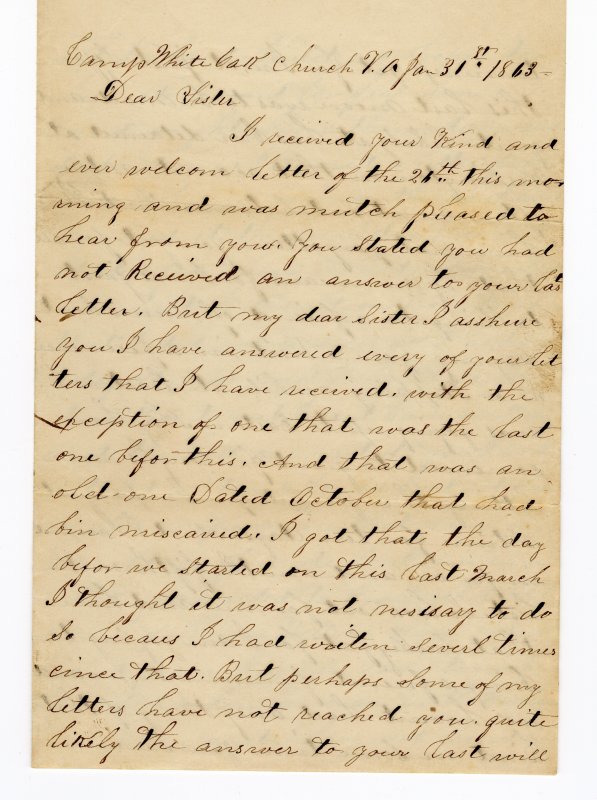 Camp White Oak Church V. A Jan 31st 1863
Dear Sister
I received your Kind and
ever welcom letter of the 26th this mor
ning and was mutch pleased to
hear from you. You stated you had
not Received an answer to your las
letter. But my dear Sister I asshure
you I have answered every of your let
ters that I have received. with the
exception of one that was the last
one befor this. And that was an
old one Dated October that had
bin miscaired. I got that the day
befor we started on this last March
I thought it was not nesisary to do
so becaus I had writen severl times
cince that. But perhaps some of my
letters have not reached you. quite
likely the answer to your last will